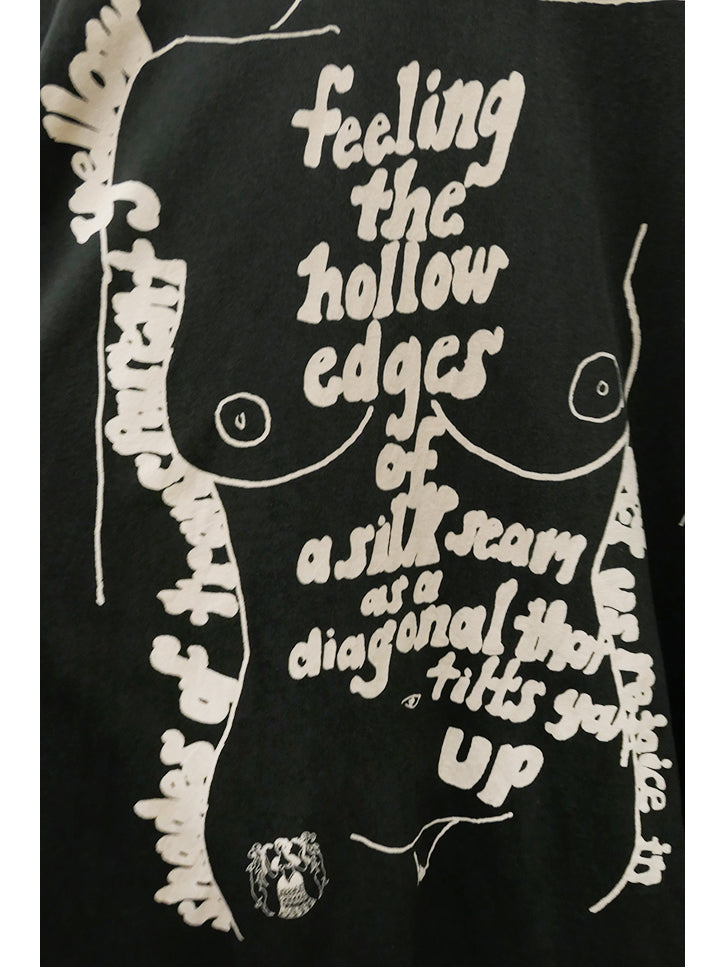 feeling
the
hollow
edges
of
a silk seam
as a
diagonal that
tilts you
up
let us rejoice in
shades of
yellow